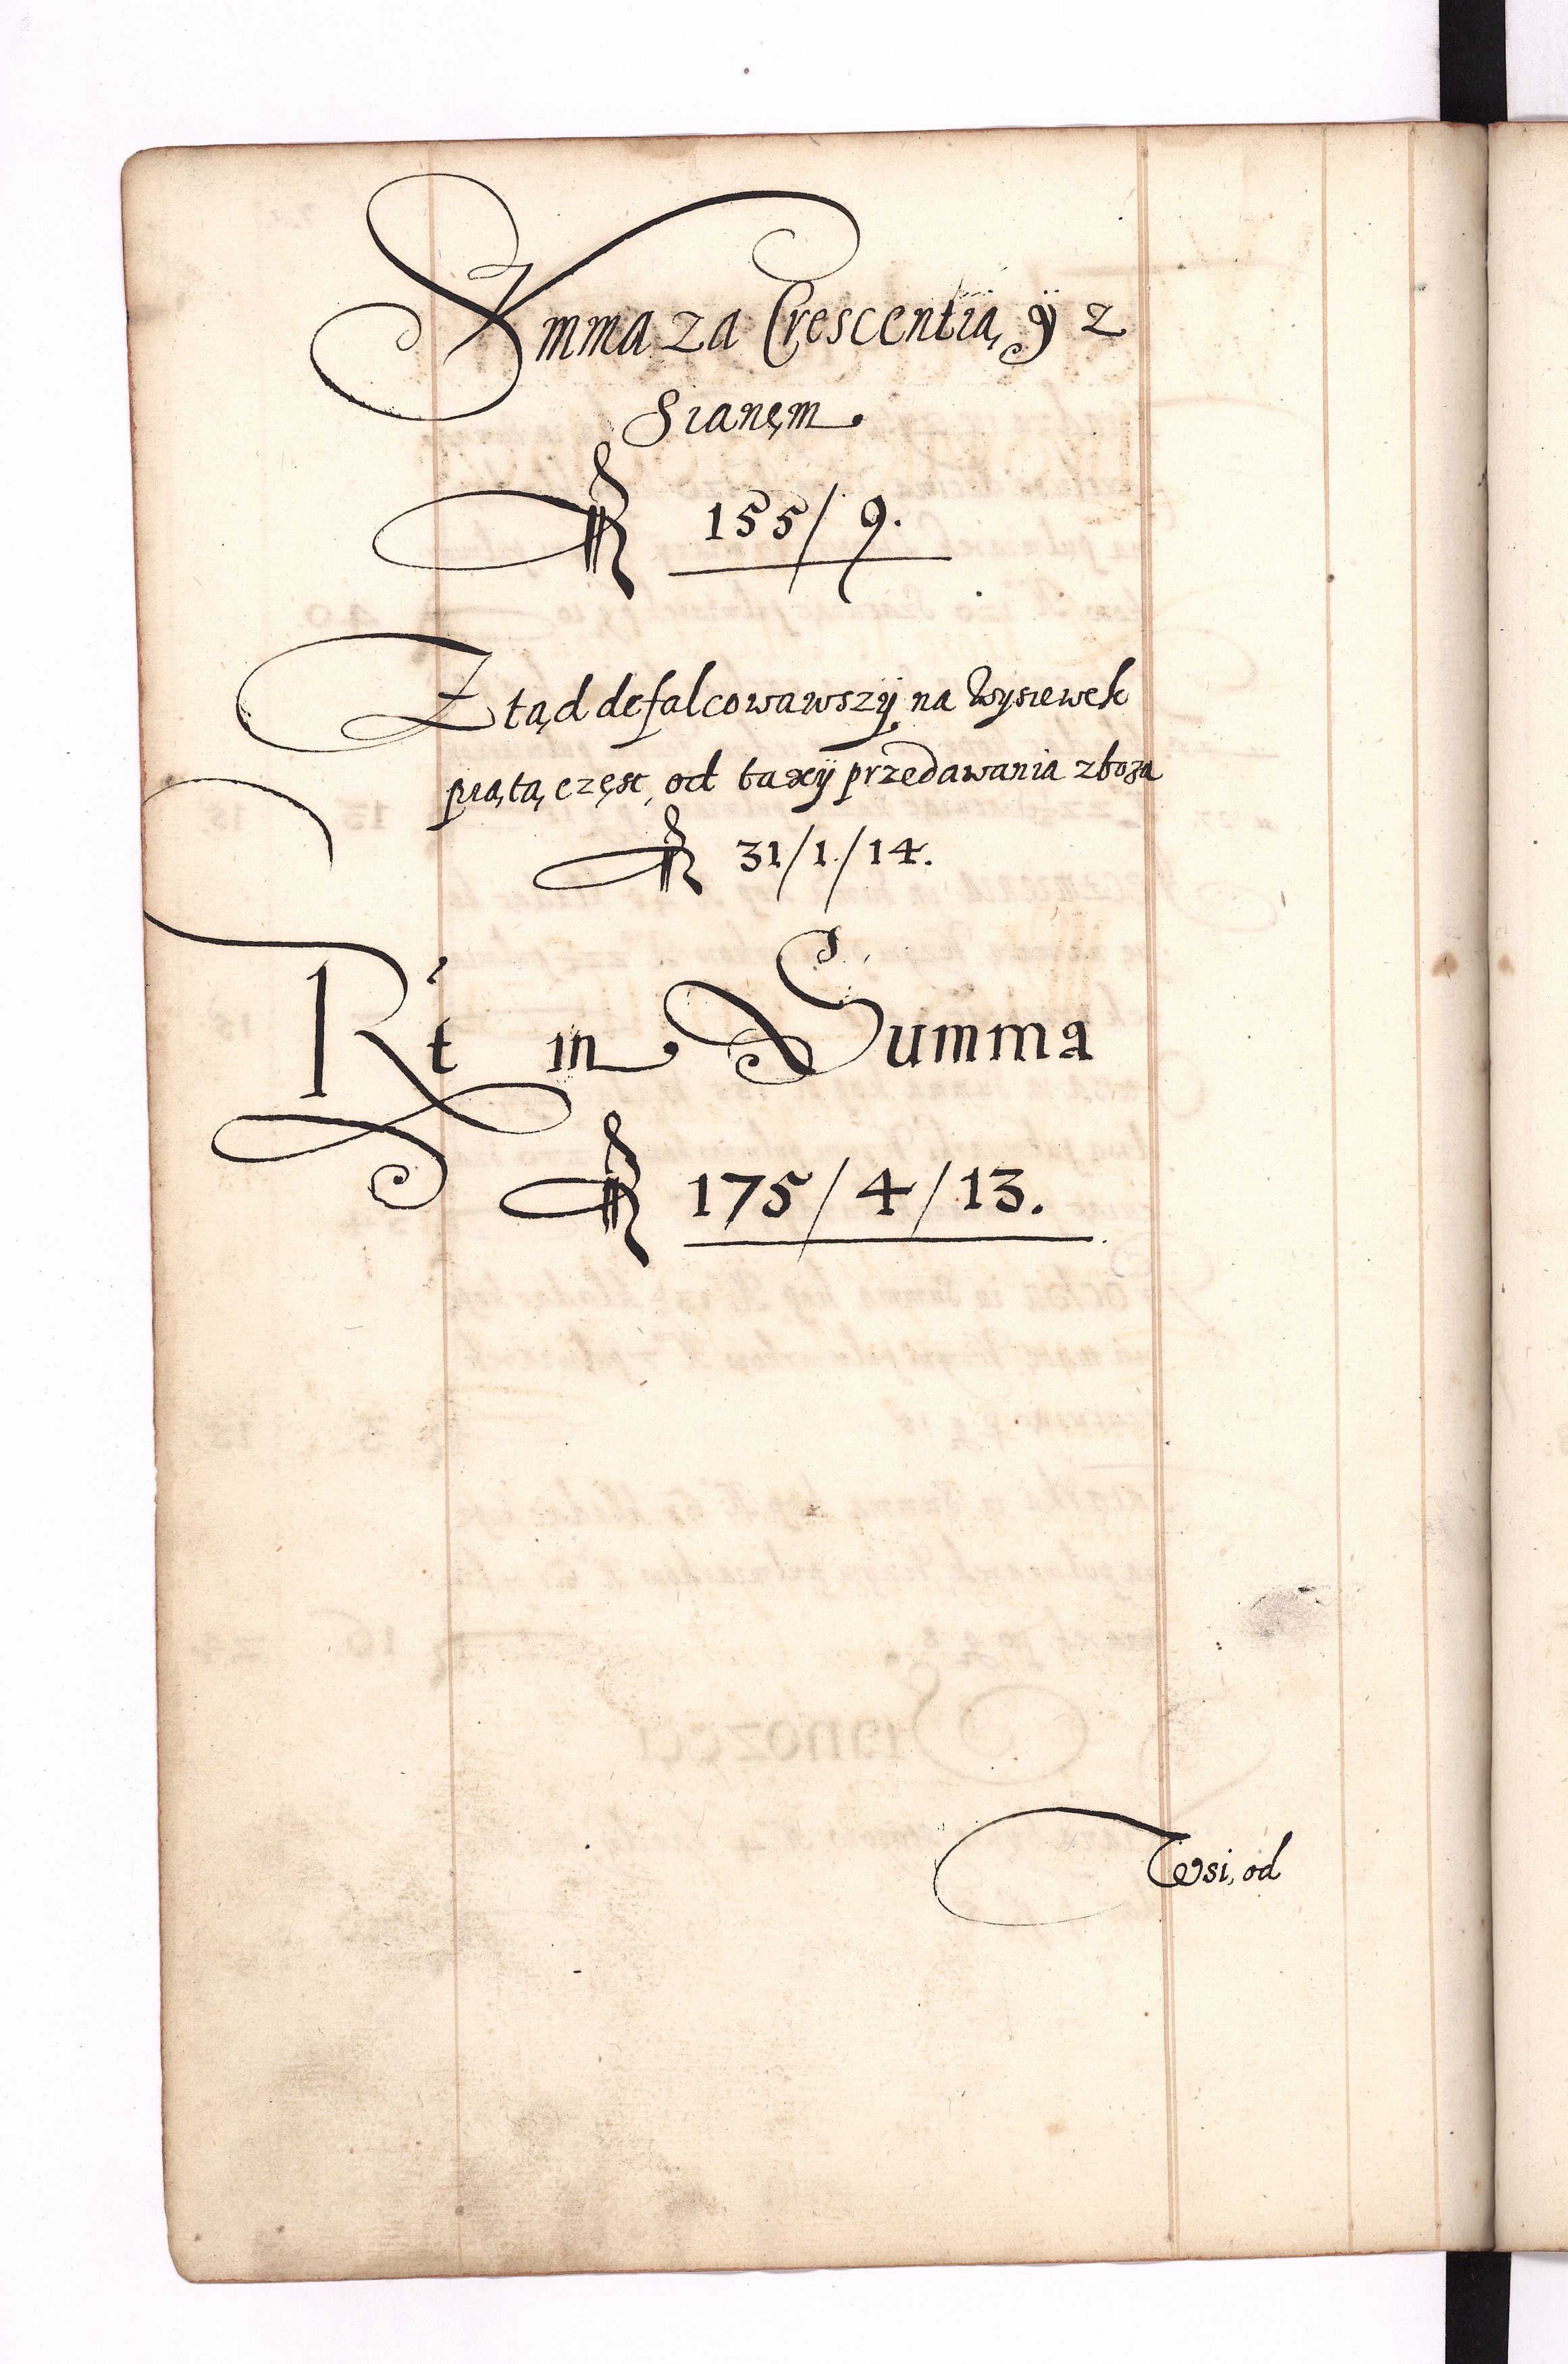 Summa za Crescentią, ÿ z
Sianęm.
ff 155/9.
Z tąd defalcowawszÿ na Wysiewek
piątą częsc, od taxÿ przedawania zboza
ff 31/1/14.
Rt in Summa
ff 175/4/13.
Wsi, od